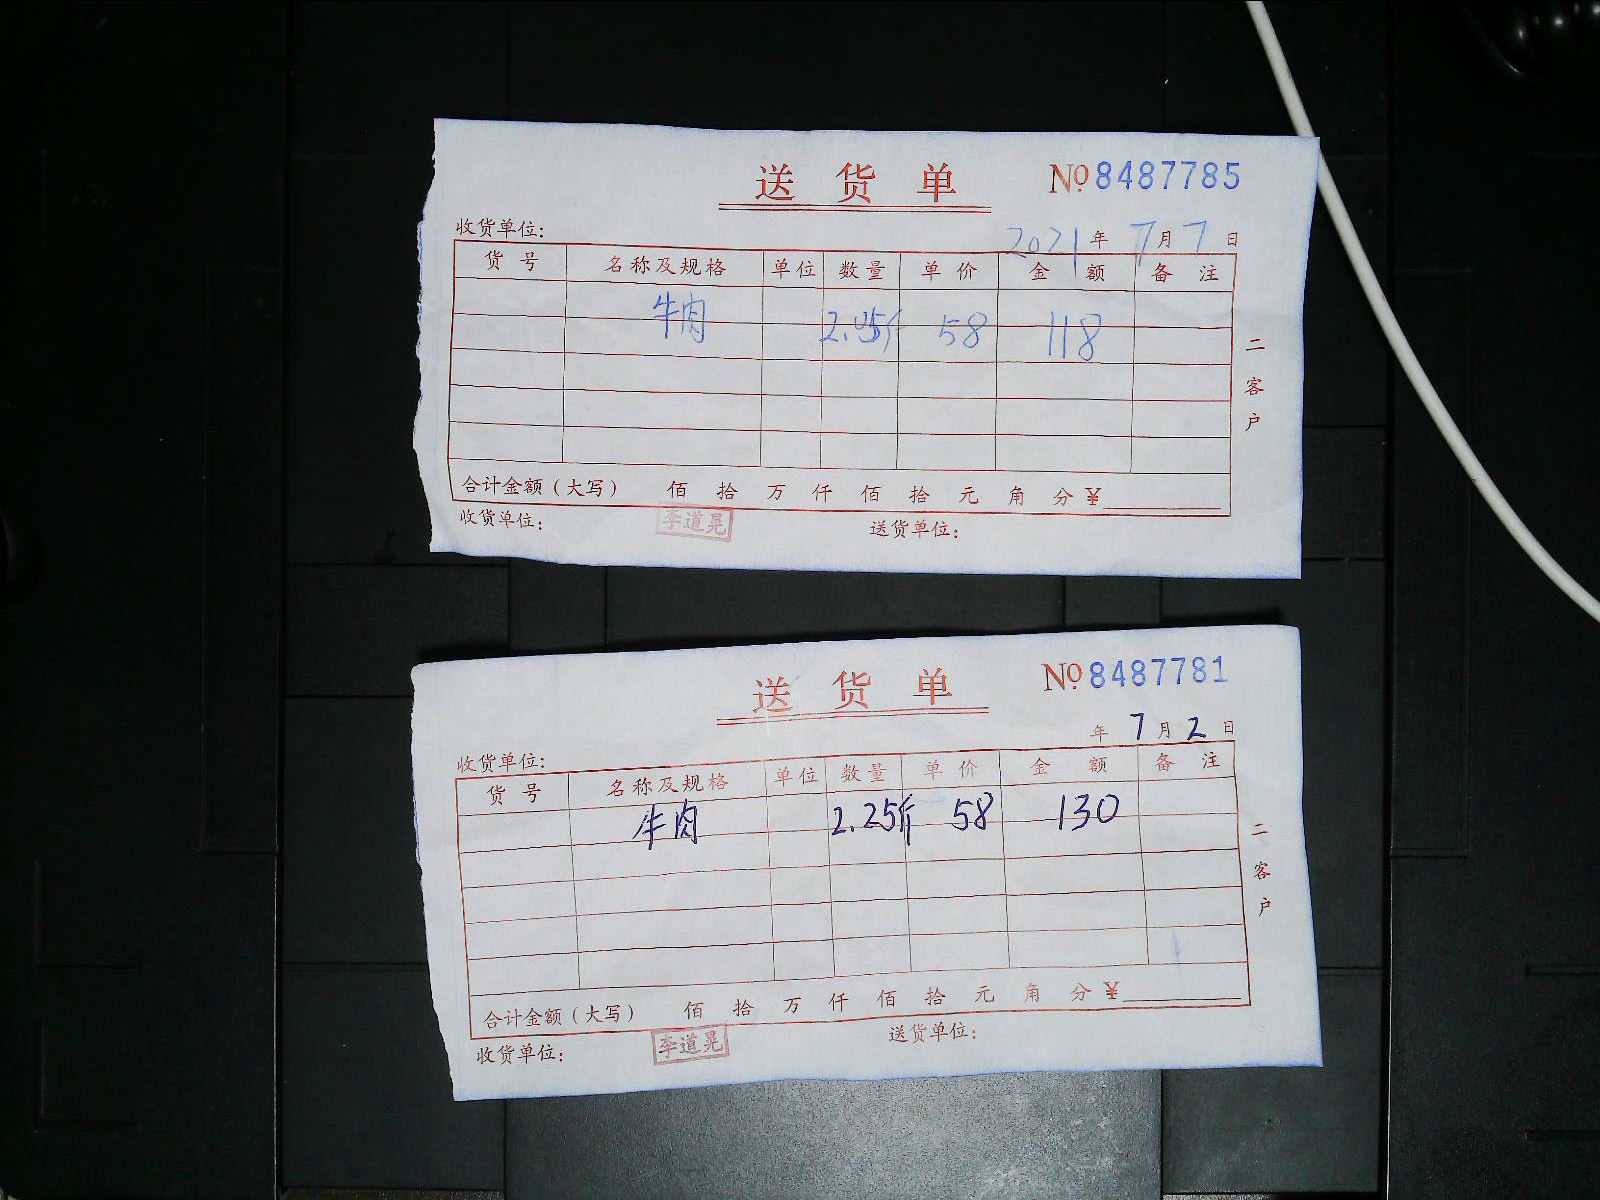 送货单 №8487785
收货单位: 2021年7月7日
货号 名称及规格 单位 数量 单价 金额 备注
牛肉 2.05斤 58 118
二客户
合计金额(大写) 佰 拾 万 仟 佰 拾 元 角 分 ¥
收货单位: 李道晃 送货单位:
送货单 №8487781
收货单位: 年7月2日
货号 名称及规格 单位 数量 单价 金额 备注
牛肉 2.25斤 58 130
二客户
合计金额(大写) 佰 拾 万 仟 佰 拾 元 角 分 ¥
收货单位: 李道晃 送货单位: